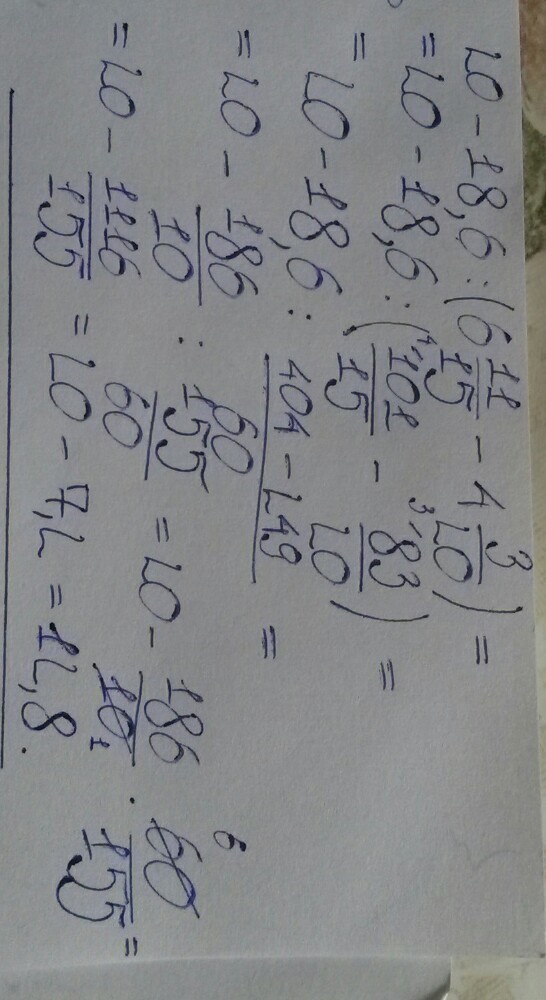 20 - 18,6 : (6 11/15 - 4 3/20) =
= 20 - 18,6 : (⁴101/15 - ³83/20) =
= 20 - 18,6 : 404 - 249/60 =
= 20 - 186/10 : 155/60 = 20 - 186/10₁ · 60⁶/155 =
= 20 - 1116/155 = 20 - 7,2 = 12,8.